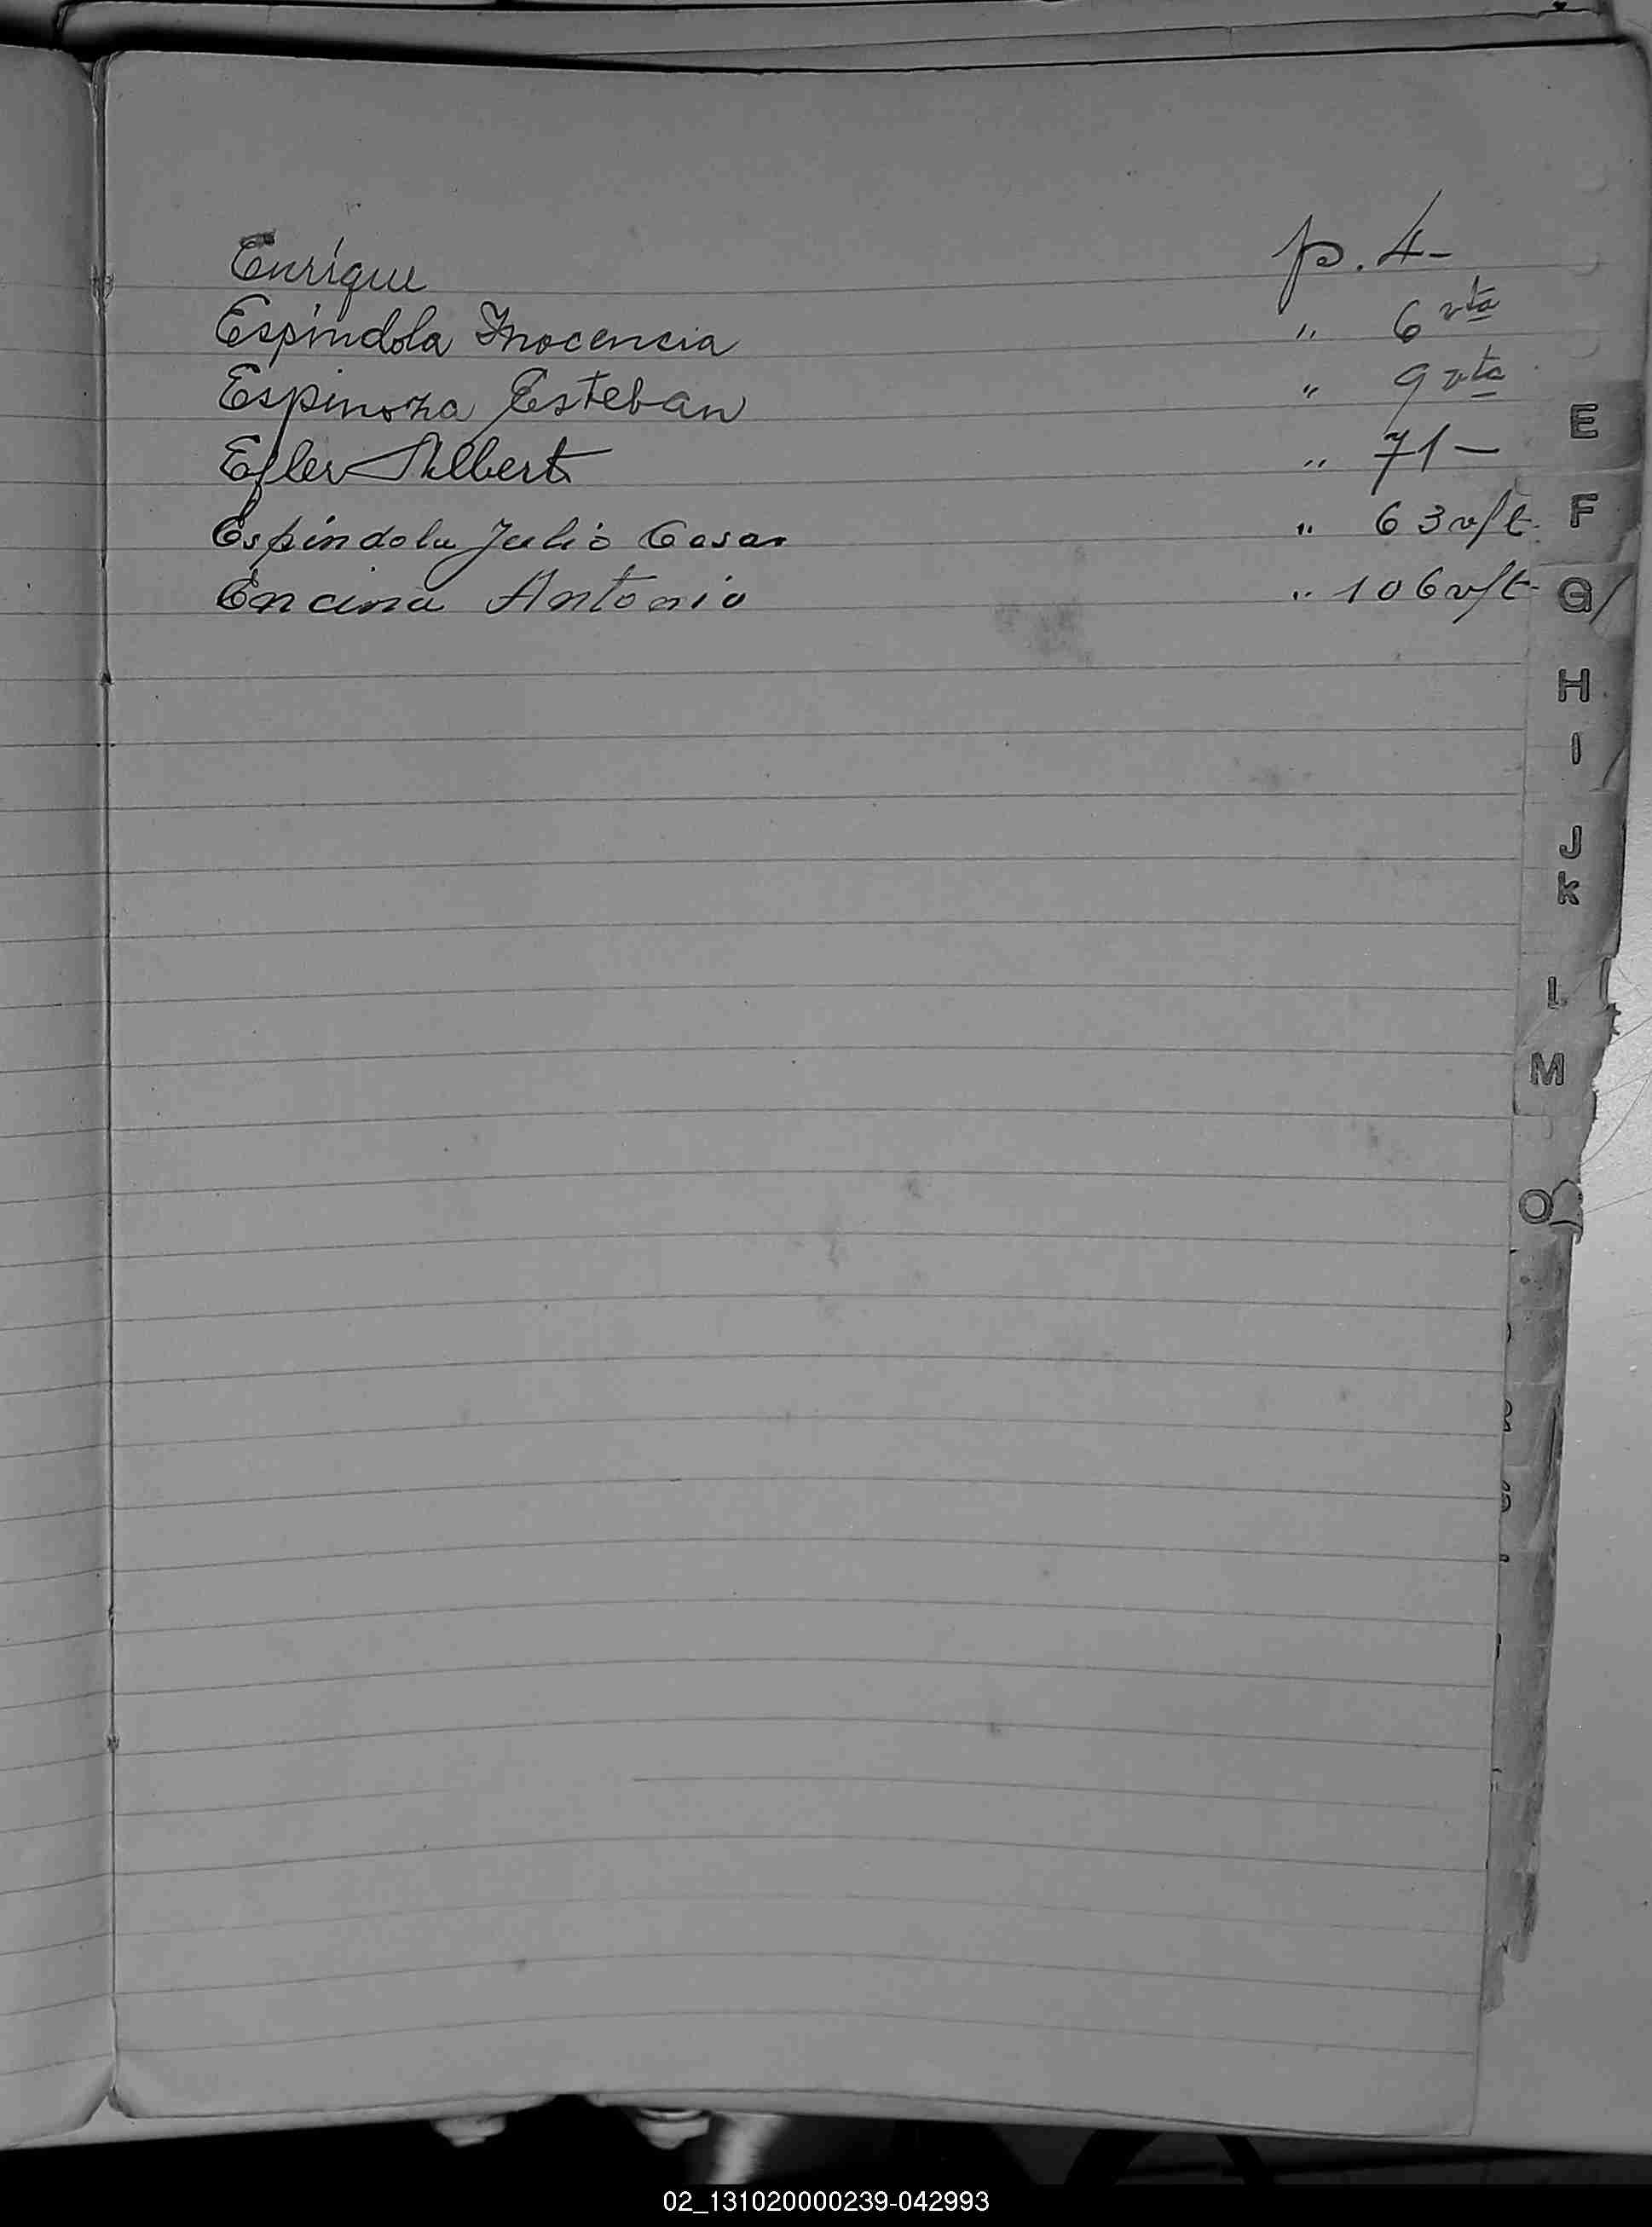 Enrique p. 4-
Espíndola Inocencia " 6 vta
Espinoza Esteban " 9 vta
Efler Albert " 71-
Espíndola Julio Cesar " 63 v/t.
Encina Antonio " 106 v/t-
E
F
G
H
I
J
K
L
M
O
02_131020000239-042993